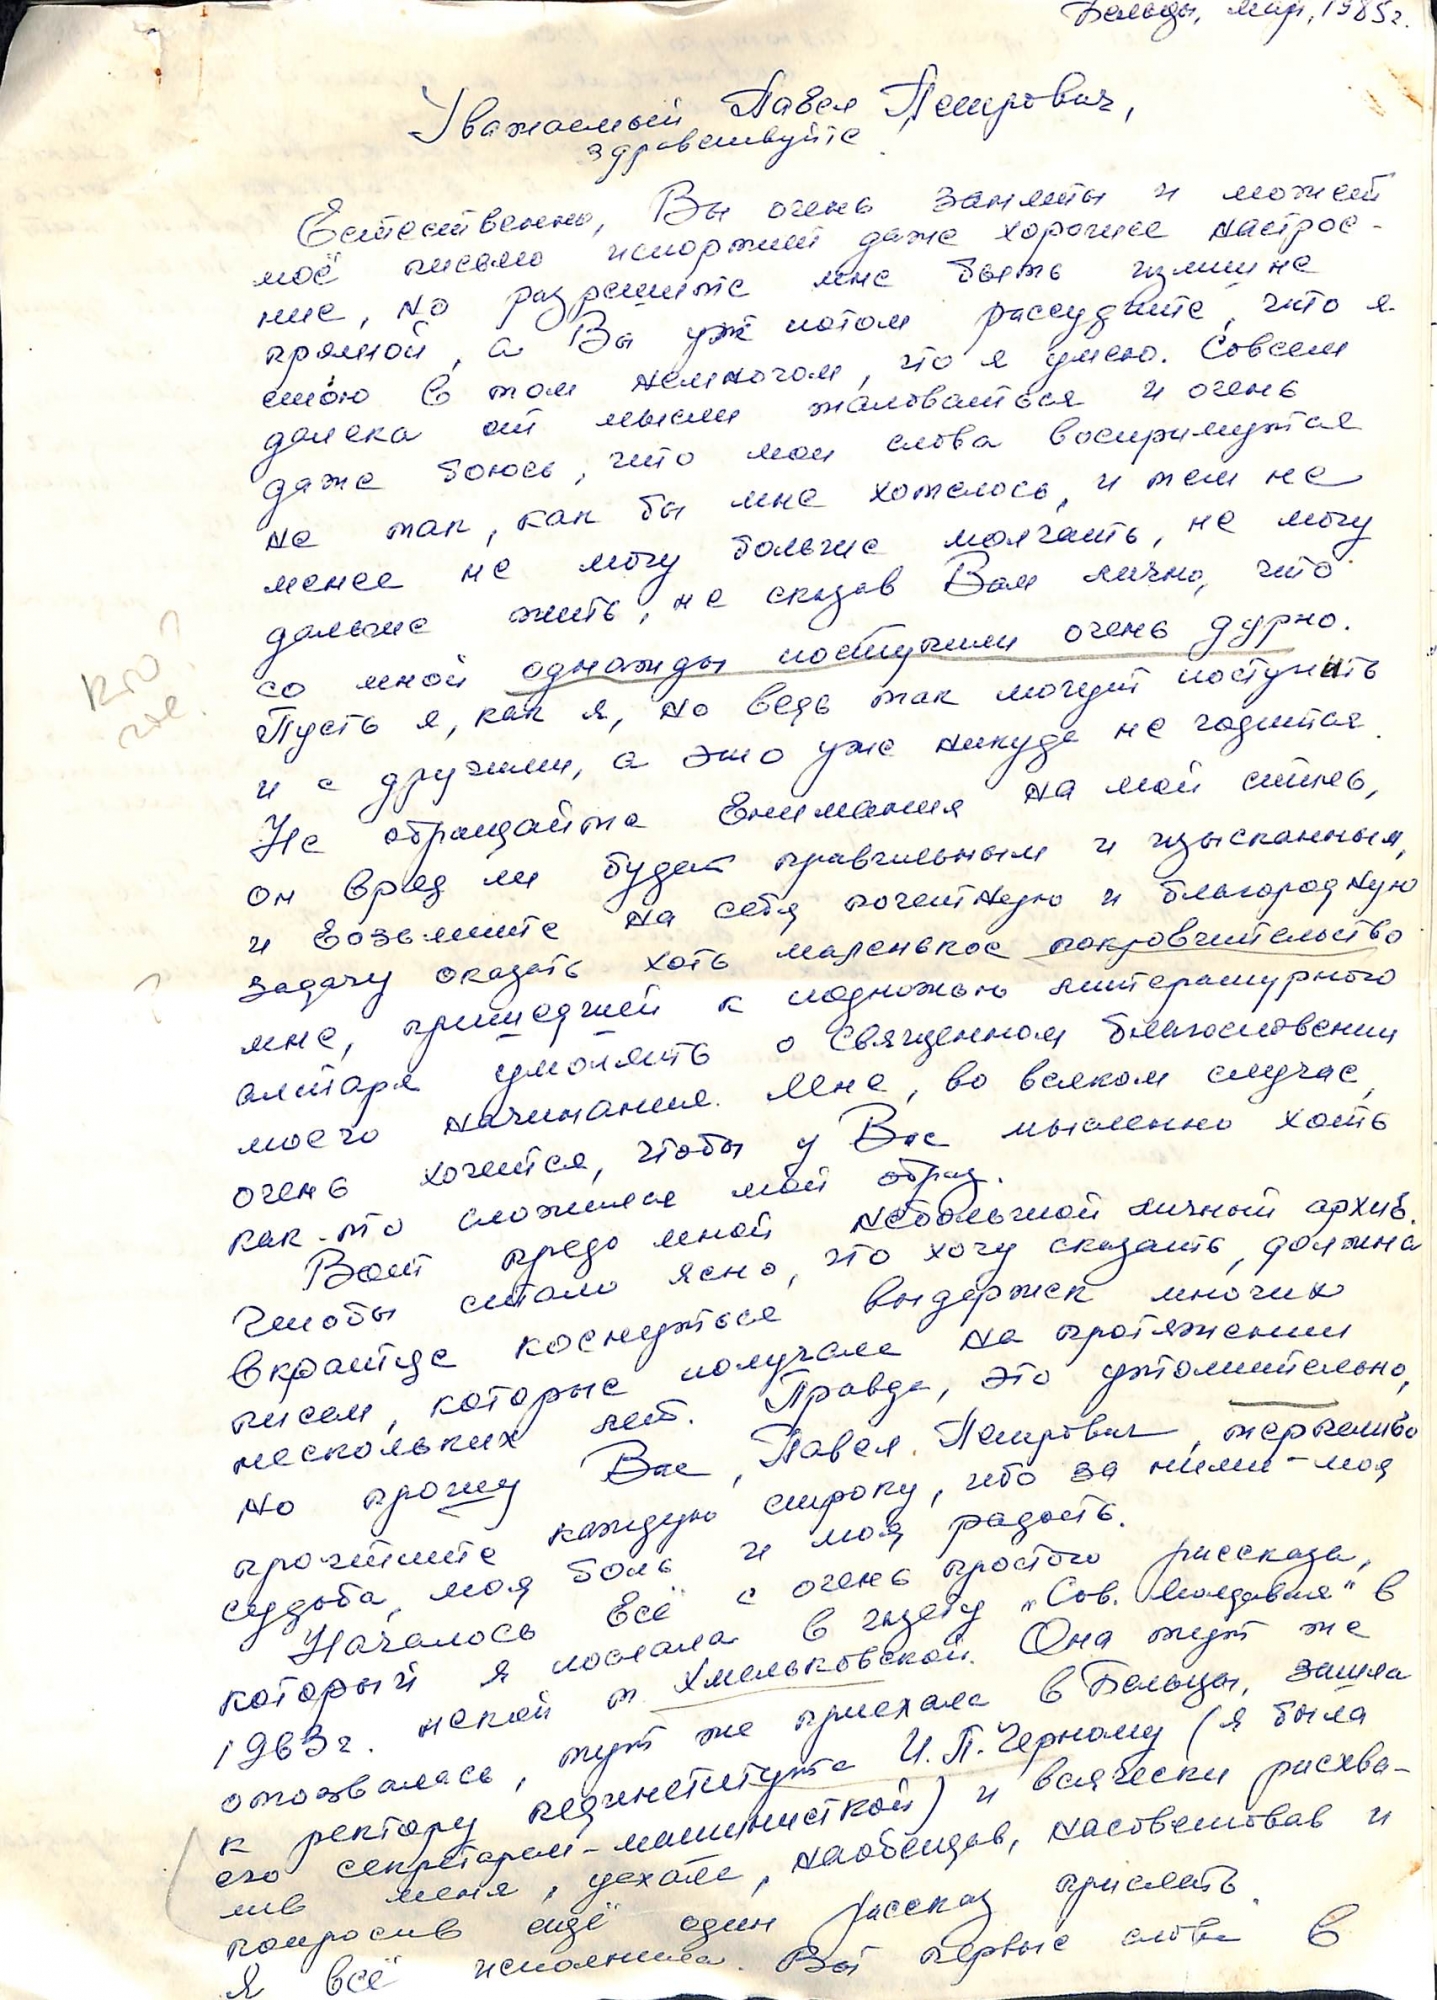 Бельцы, март, 1985г.
Уважаемый Павел Петрович,
здравствуйте!
Естественно, Вы очень заняты и может
моё письмо испортит даже хорошее настрое-
ние, но разрешите мне быть излишне
прямой, а Вы уж потом рассудите, что я
стою в том немногом, что я умею. Совсем
далека от мысли жаловаться и очень
даже боюсь, что мои слова воспримутся
не так, как бы мне хотелось, и тем не
менее не могу больше молчать, не могу
дальше жить, не сказав Вам лично, что
со мной однажды поступили очень дурно.
Пусть я, как я, но ведь так могут поступить
и с другими, а это уже никуда не годится.
Не обращайте внимания на мой стиль,
он вряд ли будет правильным и изысканным,
и возьмите на себя почетную и благородную
задачу оказать хоть маленькое покровительство
мне, пришедшей к подножью литературного
алтаря умолять о священном благословении
моего начинания. Мне, во всяком случае,
очень хочется, чтобы у Вас мысленно хоть
как-то сложился мой образ.
Вот предо мной небольшой личный архив.
Чтобы стало ясно, что хочу сказать, должна
вкратце коснуться выдержек многих
писем, которые получала на протяжении
нескольких лет. Правда, это утомительно,
но прошу Вас, Павел Петрович, терпеливо
прочтите каждую строку, ибо за ними - моя
судьба, моя боль и моя радость.
Началось всё с очень простого рассказа,
который я послала в газету „Сов. Молдавия" в
1963г. некой т. Хмельковской. Она тут же
отозвалась, тут же приехала в Бельцы, зашла
к ректору пединститута И.П. Черному (я была
его секретарем-машинисткой) и всячески расхва-
лив меня, уехала, наобещав, насоветовав и
попросив ещё один рассказ прислать.
Я всё исполнила. Вот первые слова в
кто?
где.
?